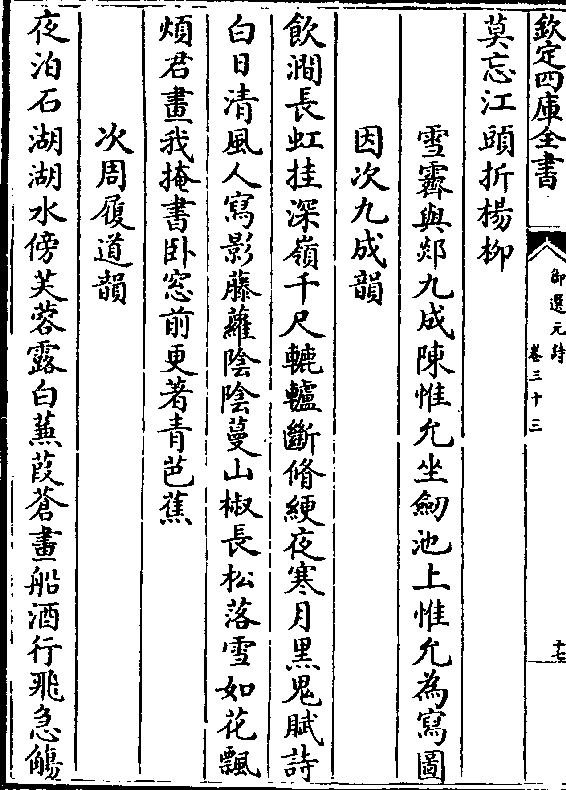 欽定四庫全書
御選元詩
卷三十三
十七
莫忘江頭折楊柳
雪霽與郯九成陳惟允坐劒池上惟允為寫圖
因次九成韻
飲澗長虹挂深嶺千尺轆轤斷脩綆夜寒月黒鬼賦詩
白日清風人寫影藤蘿陰陰蔓山椒長松落雪如花飄
煩君畫我掩書卧窓前更著青芭蕉
次周履道韻
夜泊石湖湖水傍芙蓉露白蒹葭蒼畫船酒行飛急觴